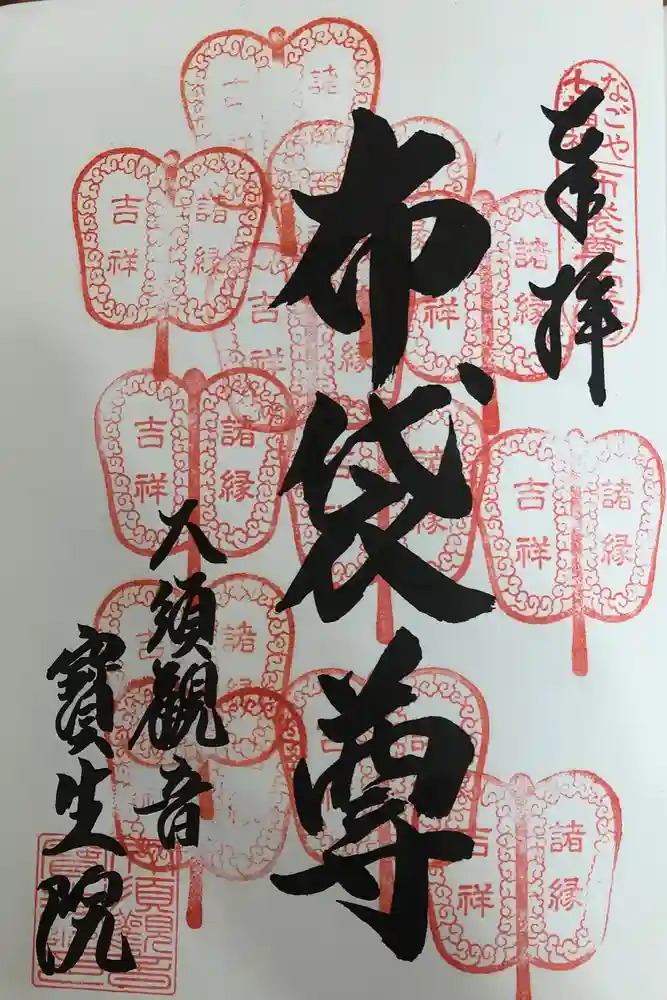 奉拝
なごや
七福神
布袋尊
布袋尊
大須観音
寳生院
諸縁
吉祥
諸縁
吉祥
諸縁
吉祥
諸縁
吉祥
諸縁
吉祥
諸縁
吉祥
諸縁
吉祥
諸縁
吉祥
諸縁
吉祥